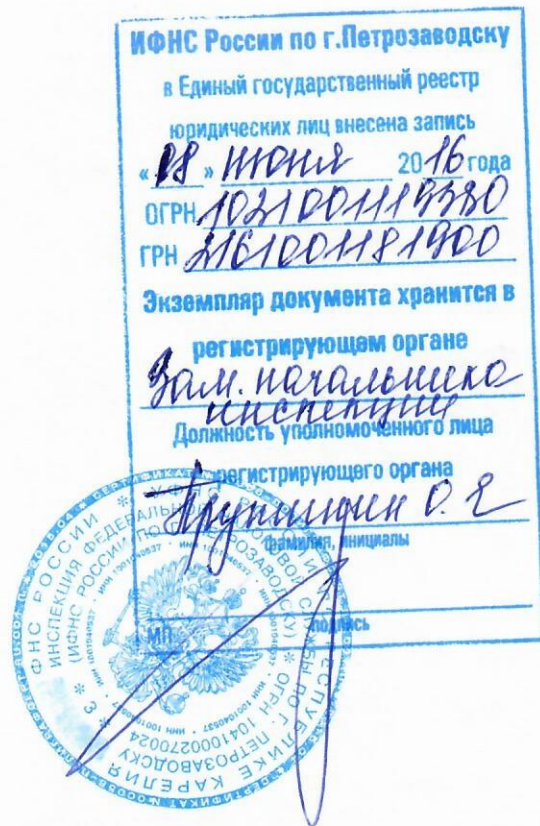 ИФНС России по г.Петрозаводску
в Единый государственный реестр
юридических лиц внесена запись
«08» июня 2016 года
ОГРН 1021001119380
ГРН 2161001181900
Экземпляр документа хранится в
регистрирующем органе
Зам. начальника
инспекции
Должность уполномоченного лица
регистрирующего органа
О. Е
фамилия, инициалы
подпись
МП
ФНС РОССИИ
ИНСПЕКЦИЯ ФЕДЕРАЛЬНОЙ НАЛОГОВОЙ СЛУЖБЫ ПО Г. ПЕТРОЗАВОДСКУ
(ИФНС РОССИИ ПО Г. ПЕТРОЗАВОДСКУ) * ОГРН 1041000270024
РЕСПУБЛИКЕ КАРЕЛИЯ * 3 *
ИНН 1001040537